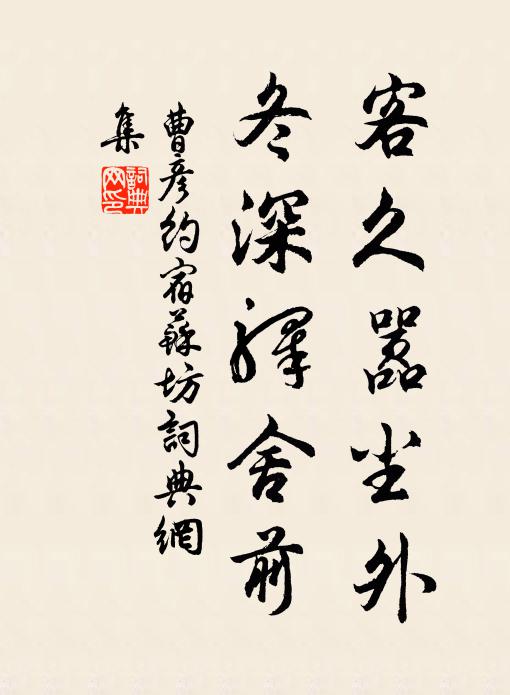 客久嚣尘外
冬深驿舍前
曹彦约宿蘇坊詞典網
集
詞典网印